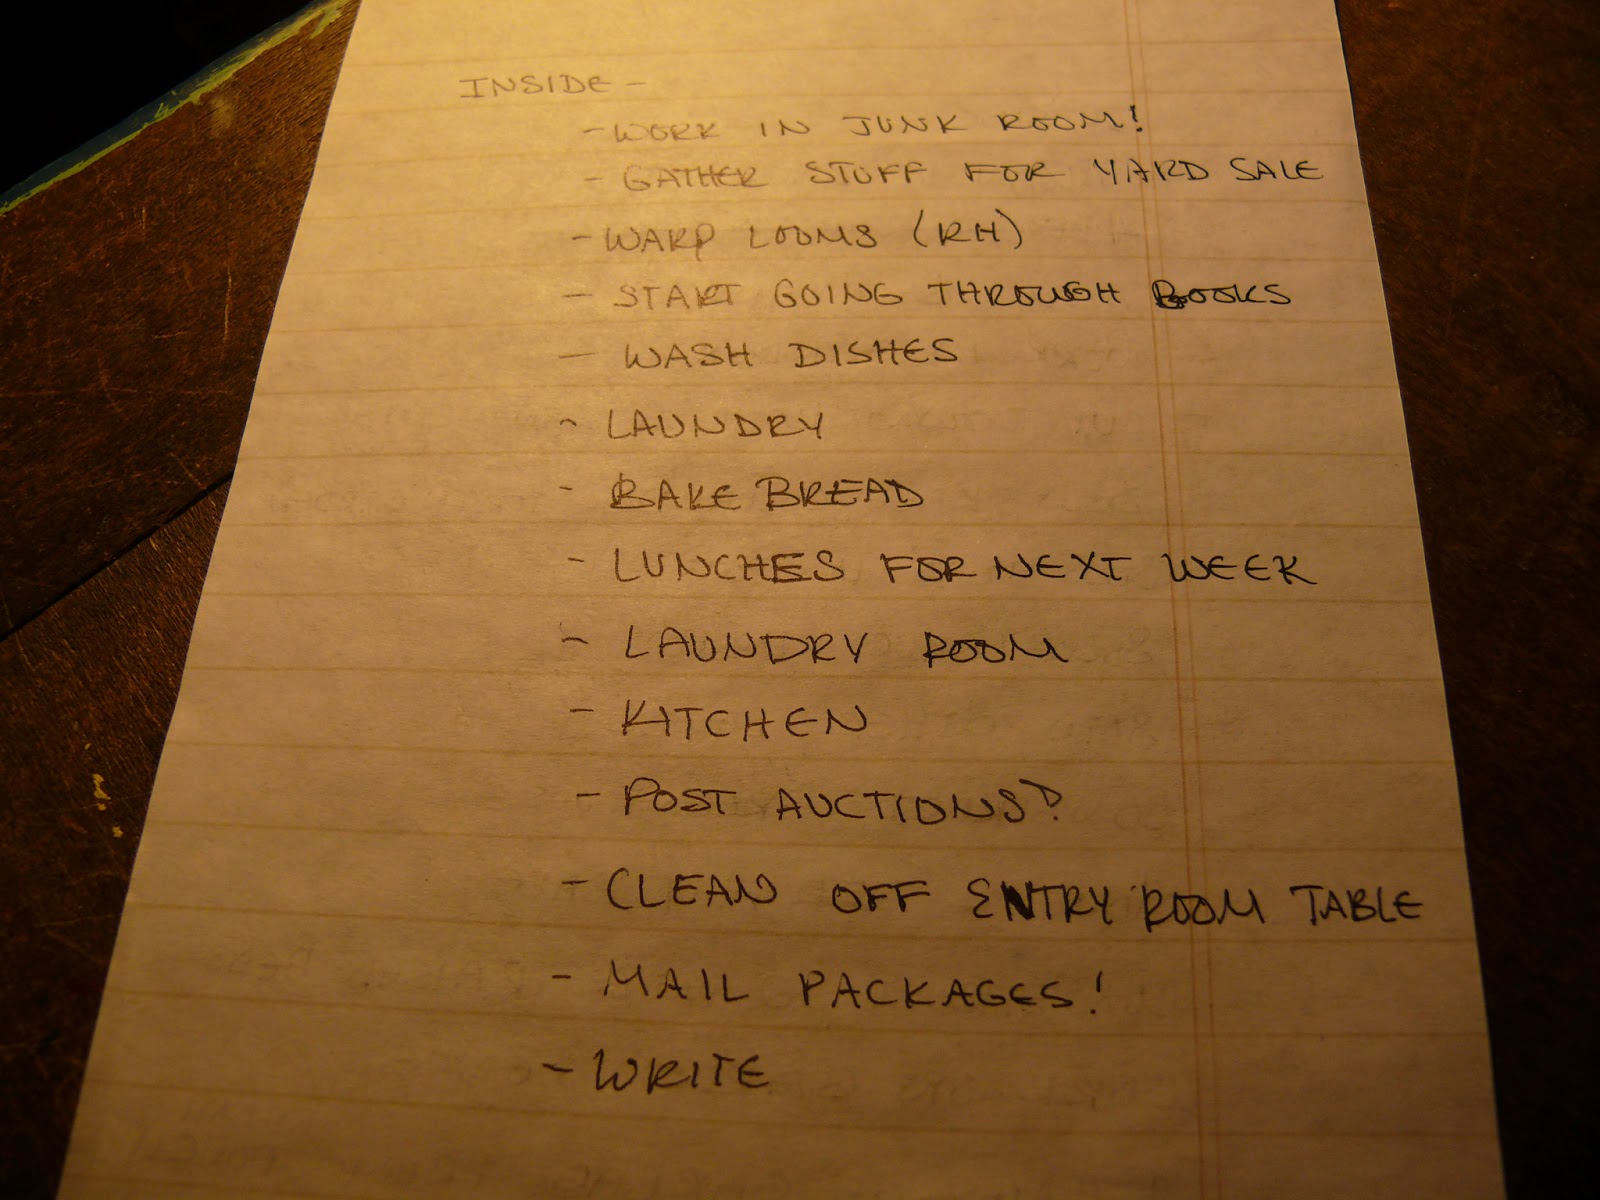 INSIDE -
- WORK IN JUNK ROOM!
- GATHER STUFF FOR YARD SALE
- WARP LOOMS (RH)
- START GOING THROUGH BOOKS
- WASH DISHES
- LAUNDRY
- BAKE BREAD
- LUNCHES FOR NEXT WEEK
- LAUNDRY ROOM
- KITCHEN
- POST AUCTIONS?
- CLEAN OFF ENTRY ROOM TABLE
- MAIL PACKAGES!
- WRITE